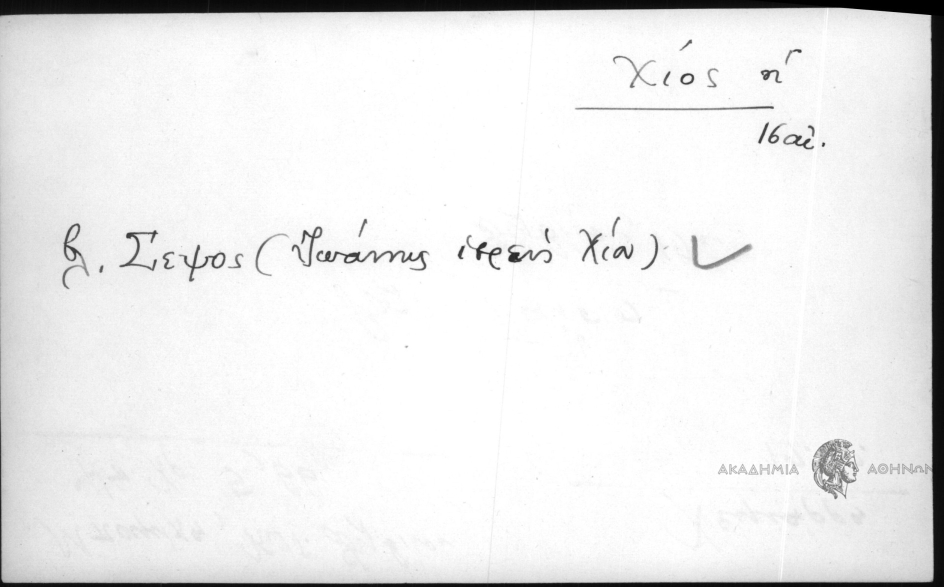 Χίος ἡ
16 αἰ.
βλ. Σεψος (Ἰωάννης ἱερεὺς Χίου)
ΑΚΑΔΗΜΙΑ ΑΘΗΝΩΝ